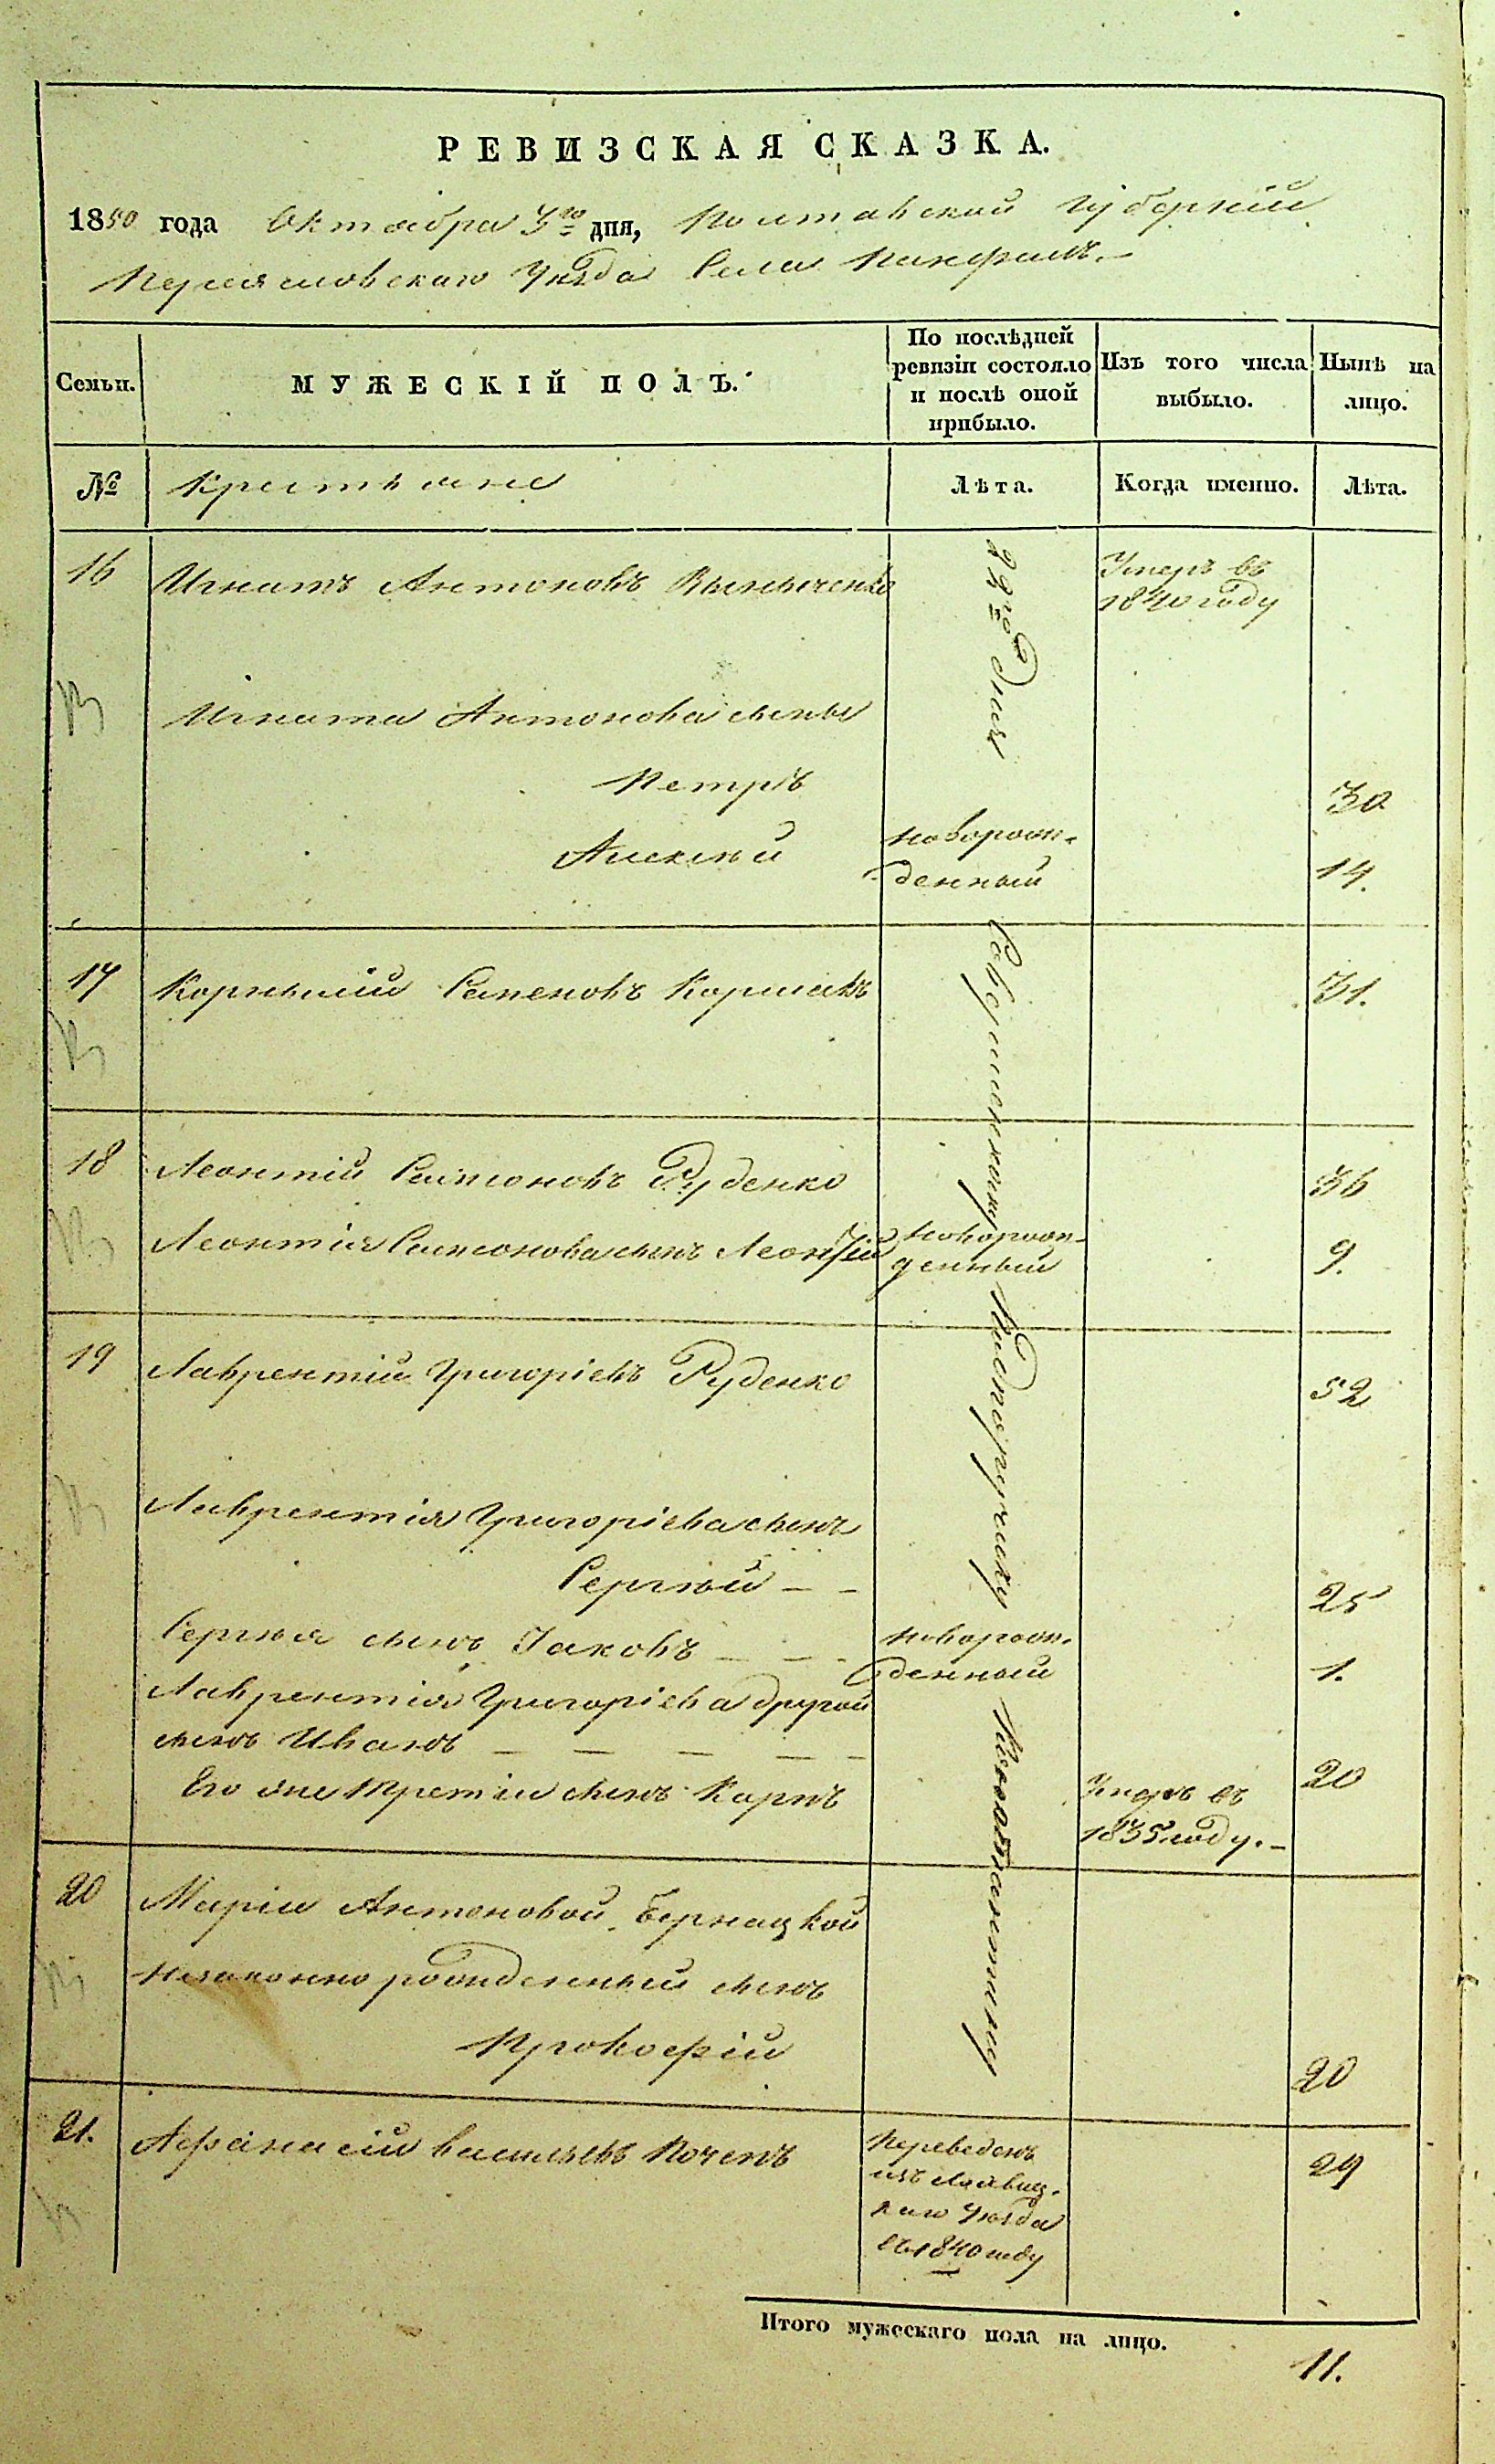 РЕВИЗСКАЯ СКАЗКА.
1850 года Октября 3го дня, Полтавской Губерніи
Переясловскаго Уѣзда Села Панфилъ.
Семьи.
МУЖЕСКІЙ ПОЛЪ.
По послѣдней
ревизіи состояло
и послѣ оной
прибыло.
Изъ того числа
выбыло.
Нынѣ на
лицо.
№
Крестьяне
Лѣта.
Когда именно.
Лѣта.
16
Игнатъ Антоновъ
Умеръ въ
1840 году
Игната Антонова сыны
Петръ
30
Алексѣй
новорож-
денный
14.
17
Корнилій Семеновъ
31.
18
Леонтій Самсоновъ Руденко
36
Леонтія Самсонова сынъ
новорож-
денный
9.
19
Лаврентій Григоріевъ Руденко
52
Лаврентія Григоріева сынъ
Сергѣй
25
Сергѣя сынъ Іаковъ
новорож-
денный
1.
Лаврентія Григоріева другой
сынъ Иванъ
20
Его же третій сынъ Карпъ
Умеръ въ
1835 году.
20
Маріи Антоновой Бернацкой
незаконно рожденный сынъ
Прокофій
20
21.
Афанасій Васильевъ
Переведенъ
изъ
Уѣзда
въ 1840 году
29
Итого мужескаго пола на лицо.
11.